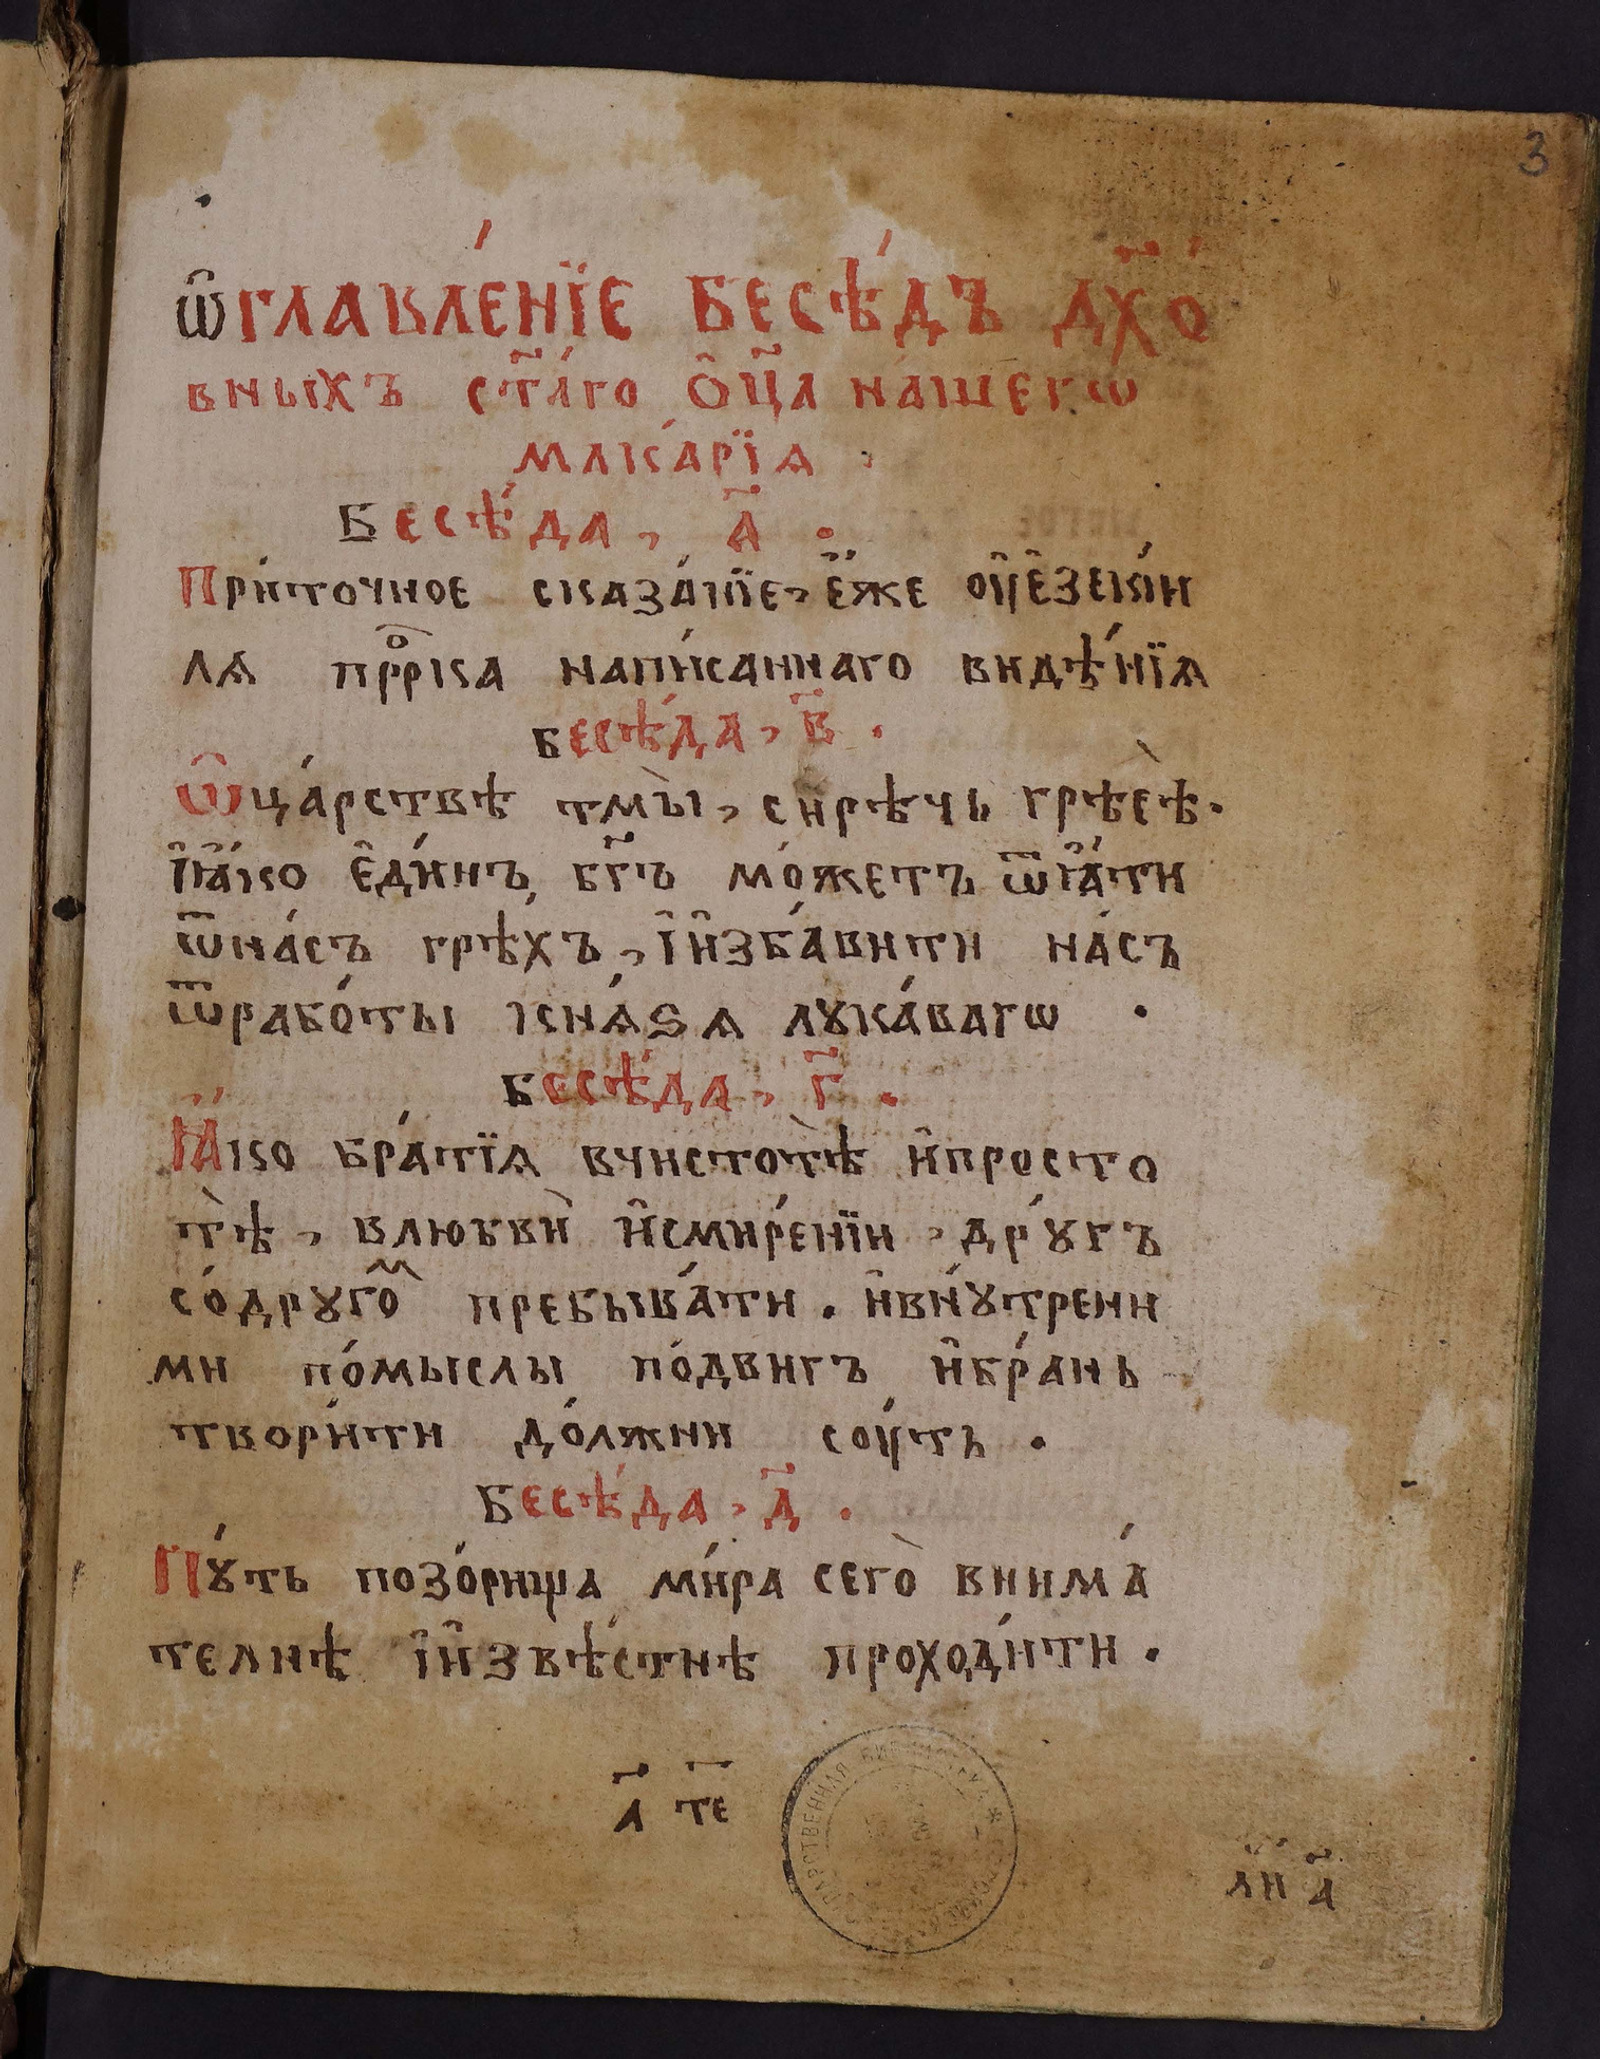 3
ѡ҆главле́нїе бесѣ́дъ дх҃о́
вныхъ ст҃а́го ѻ҆ц҃а на́шегѡ
мака́рїѧ .
Бесѣ́да, а҃ .
При́точное сказа́нїе, є҆́же ѹ҆є҆зекїи́
лѧ прⷪ҇рка напи́саннаго видѣ́нїѧ
бесѣ́да, в҃ .
Ѡ҆ца́рствѣ тмы̀, сирѣчь грѣсѣ̀.
І҆ꙗ҆́ко є҆ди́нъ, бг҃ъ мо́жетъ ѿꙗ҆́ти
ѿна́съ грѣ́хъ, і҆и҆зба́вити на́съ
ѿрабо́ты кнѧ́ѕѧ лꙋка́вагѡ .
Бесѣ́да, г҃ .
Ꙗ҆́ко бра́тїѧ вчистотѣ̀ и҆просто
тѣ̀, влюбвѝ и҆смире́нїи, дрꙋ́гъ
со́дрꙋго́ⷨ пребыва́ти . и҆внꙋ́тренни
ми по́мыслы по́двигъ и҆бра́нь
твори́ти до́лжни сѹ́ть .
Бесѣ́да, д҃ .
Пꙋ́ть позо́рища ми́ра сего̀ внима́
телнѣ і҆и҆звѣ́стнѣ проходи́ти .
а҃ те҃
ли҃ а҃